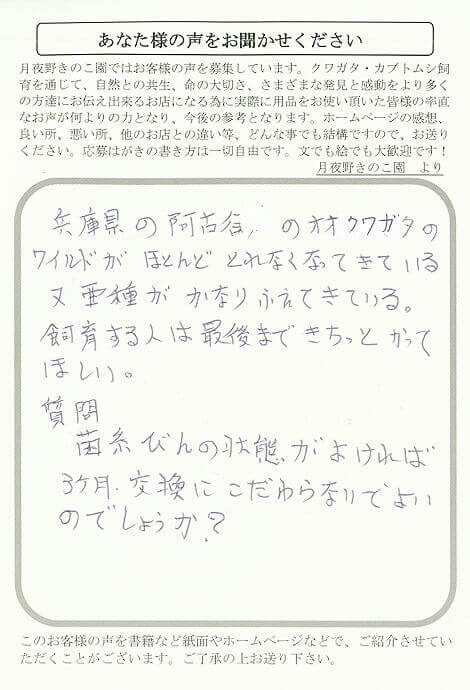 あなた様の声をお聞かせください
月夜野きのこ園ではお客様の声を募集しています。クワガタ・カブトムシ飼
育を通じて、自然との共生、命の大切さ、さまざまな発見と感動をより多く
の方達にお伝え出来るお店になる為に実際に用品をお使い頂いた皆様の率直
なお声が何よりの力となり、今後の参考となります。ホームページの感想、
良い所、悪い所、他のお店との違い等、どんな事でも結構ですので、お送り
ください。応募はがきの書き方は一切自由です。文でも絵でも大歓迎です!
月夜野きのこ園 より
兵庫県の阿古谷、のオオクワガタの
ワイルドが ほとんど とれなくなってきている
又 亜種が かなり ふえてきている。
飼育する人は最後まで きちっと かって
ほしい。
質問
菌糸びんの状態がよければ
3ケ月.交換に こだわらないでよい
のでしょうか?
このお客様の声を書籍など紙面やホームページなどで、ご紹介させてい
ただくことがございます。ご了承の上お送り下さい。